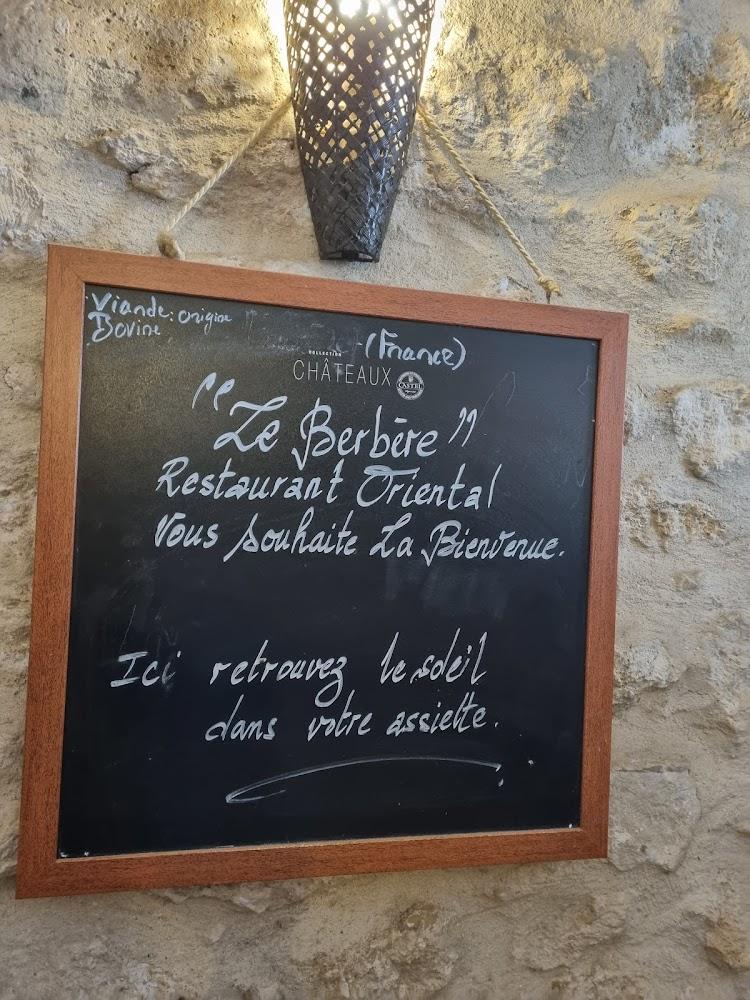 Viande: origine
Bovine
(France)
COLLECTION
CHÂTEAUX
CASTEL
"Le Berbère"
Restaurant Oriental
Vous souhaite La Bienvenue.
Ici retrouvez le soleil
dans votre assiette.